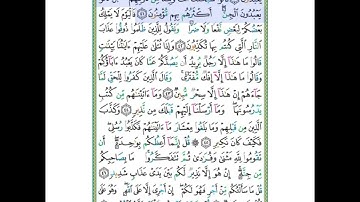 يَعْبُدُونَ ٱلْجِنَّ أَكْثَرُهُم بِهِم مُّؤْمِنُونَ ٤١ فَٱلْيَوْمَ لَا يَمْلِكُ
بَعْضُكُمْ لِبَعْضٍ نَّفْعًا وَلَا ضَرًّا وَنَقُولُ لِلَّذِينَ ظَلَمُوا۟ ذُوقُوا۟ عَذَابَ
ٱلنَّارِ ٱلَّتِى كُنتُم بِهَا تُكَذِّبُونَ ٤٢ وَإِذَا تُتْلَىٰ عَلَيْهِمْ ءَايَٰتُنَا بَيِّنَٰتٍ
قَالُوا۟ مَا هَٰذَآ إِلَّا رَجُلٌ يُرِيدُ أَن يَصُدَّكُمْ عَمَّا كَانَ يَعْبُدُ ءَابَآؤُكُمْ
وَقَالُوا۟ مَا هَٰذَآ إِلَّآ إِفْكٌ مُّفْتَرًى وَقَالَ ٱلَّذِينَ كَفَرُوا۟ لِلْحَقِّ لَمَّا
جَآءَهُمْ إِنْ هَٰذَآ إِلَّا سِحْرٌ مُّبِينٌ ٤٣ وَمَآ ءَاتَيْنَٰهُم مِّن كُتُبٍ
يَدْرُسُونَهَا وَمَآ أَرْسَلْنَآ إِلَيْهِمْ قَبْلَكَ مِن نَّذِيرٍ ٤٤ وَكَذَّبَ
ٱلَّذِينَ مِن قَبْلِهِمْ وَمَا بَلَغُوا۟ مِعْشَارَ مَآ ءَاتَيْنَٰهُمْ فَكَذَّبُوا۟ رُسُلِى
فَكَيْفَ كَانَ نَكِيرِ ٤٥ قُلْ إِنَّمَآ أَعِظُكُم بِوَٰحِدَةٍ أَن
تَقُومُوا۟ لِلَّهِ مَثْنَىٰ وَفُرَٰدَىٰ ثُمَّ تَتَفَكَّرُوا۟ مَا بِصَاحِبِكُم
مِّن جِنَّةٍ إِنْ هُوَ إِلَّا نَذِيرٌ لَّكُم بَيْنَ يَدَىْ عَذَابٍ شَدِيدٍ ٤٦
قُلْ مَا سَأَلْتُكُم مِّنْ أَجْرٍ فَهُوَ لَكُمْ إِنْ أَجْرِىَ إِلَّا عَلَى